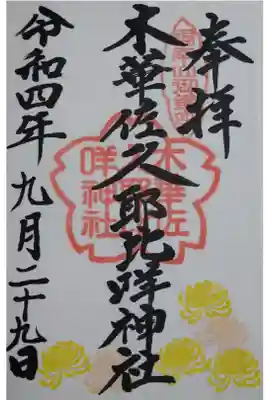 奉拝
木華佐久耶比咩神社
令和四年 九月二十九日
木華佐
咩神社